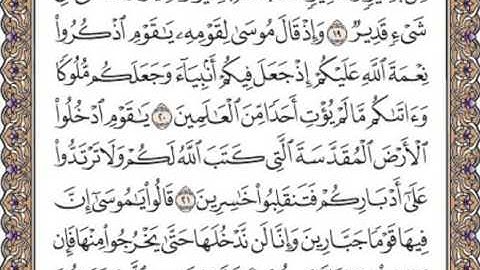 شَىْءٍ قَدِيرٌ ١٩ وَإِذْ قَالَ مُوسَىٰ لِقَوْمِهِۦ يَٰقَوْمِ ٱذْكُرُوا۟
نِعْمَةَ ٱللَّهِ عَلَيْكُمْ إِذْ جَعَلَ فِيكُمْ أَنۢبِيَآءَ وَجَعَلَكُم مُّلُوكًا
وَءَاتَىٰكُم مَّا لَمْ يُؤْتِ أَحَدًا مِّنَ ٱلْعَٰلَمِينَ ٢٠ يَٰقَوْمِ ٱدْخُلُوا۟
ٱلْأَرْضَ ٱلْمُقَدَّسَةَ ٱلَّتِى كَتَبَ ٱللَّهُ لَكُمْ وَلَا تَرْتَدُّوا۟
عَلَىٰٓ أَدْبَارِكُمْ فَتَنقَلِبُوا۟ خَٰسِرِينَ ٢١ قَالُوا۟ يَٰمُوسَىٰٓ إِنَّ
فِيهَا قَوْمًا جَبَّارِينَ وَإِنَّا لَن نَّدْخُلَهَا حَتَّىٰ يَخْرُجُوا۟ مِنْهَا فَإِن